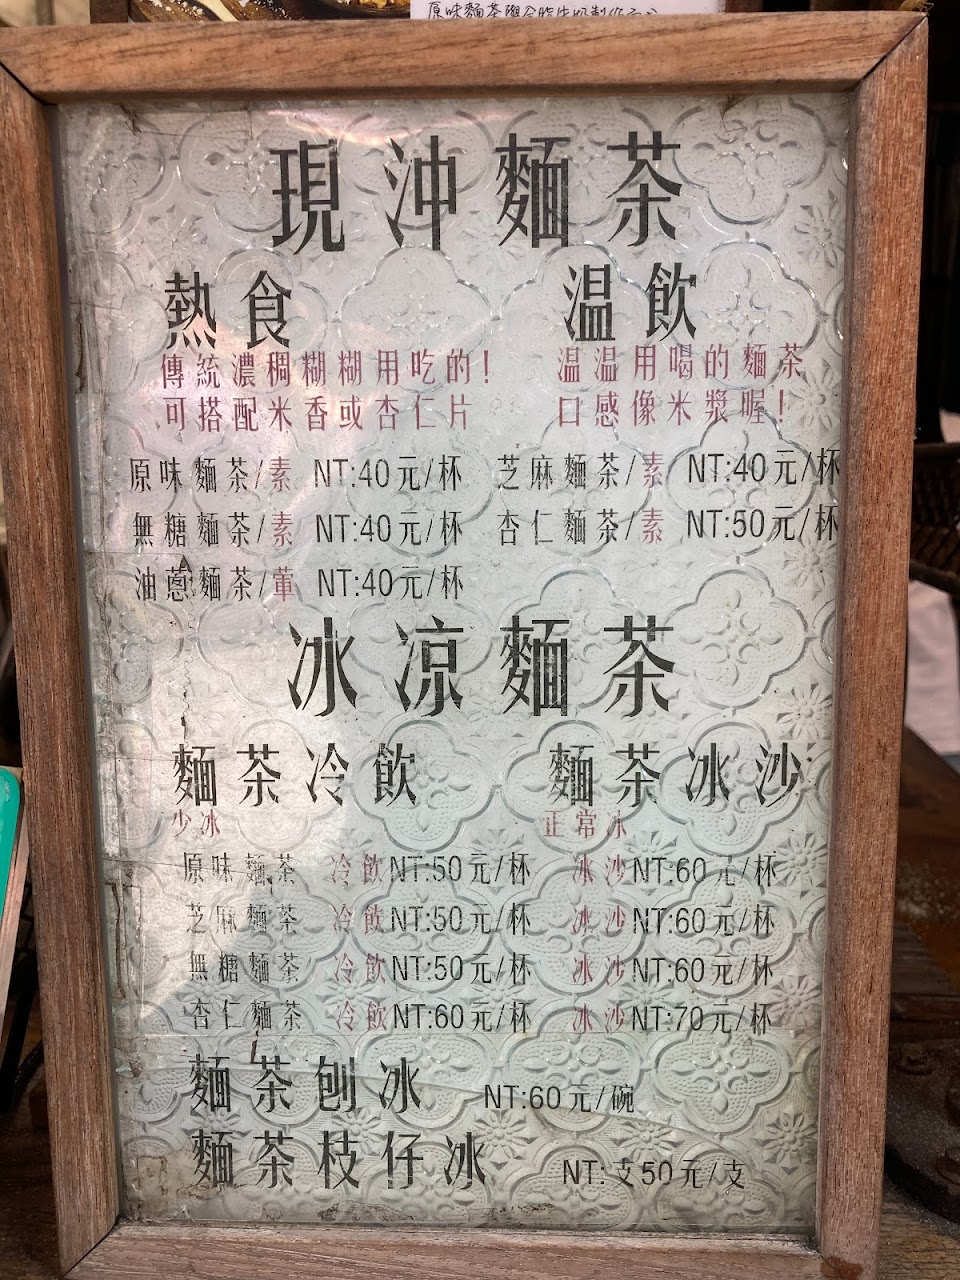 現沖麵茶
熱食
傳統濃稠糊糊用吃的！
可搭配米香或杏仁片
原味麵茶/素 NT:40元/杯
無糖麵茶/素 NT:40元/杯
油蔥麵茶/葷 NT:40元/杯
温飲
温温用喝的麵茶
口感像米漿喔！
芝麻麵茶/素 NT:40元/杯
杏仁麵茶/素 NT:50元/杯
冰凉麵茶
麵茶冷飲 麵茶冰沙
少冰 正常冰
原味麵茶 冷飲NT:50元/杯 冰沙NT:60元/杯
芝麻麵茶 冷飲NT:50元/杯 冰沙NT:60元/杯
無糖麵茶 冷飲NT:50元/杯 冰沙NT:60元/杯
杏仁麵茶 冷飲NT:60元/杯 冰沙NT:70元/杯
麵茶刨冰 NT:60元/碗
麵茶枝仔冰 NT:支50元/支